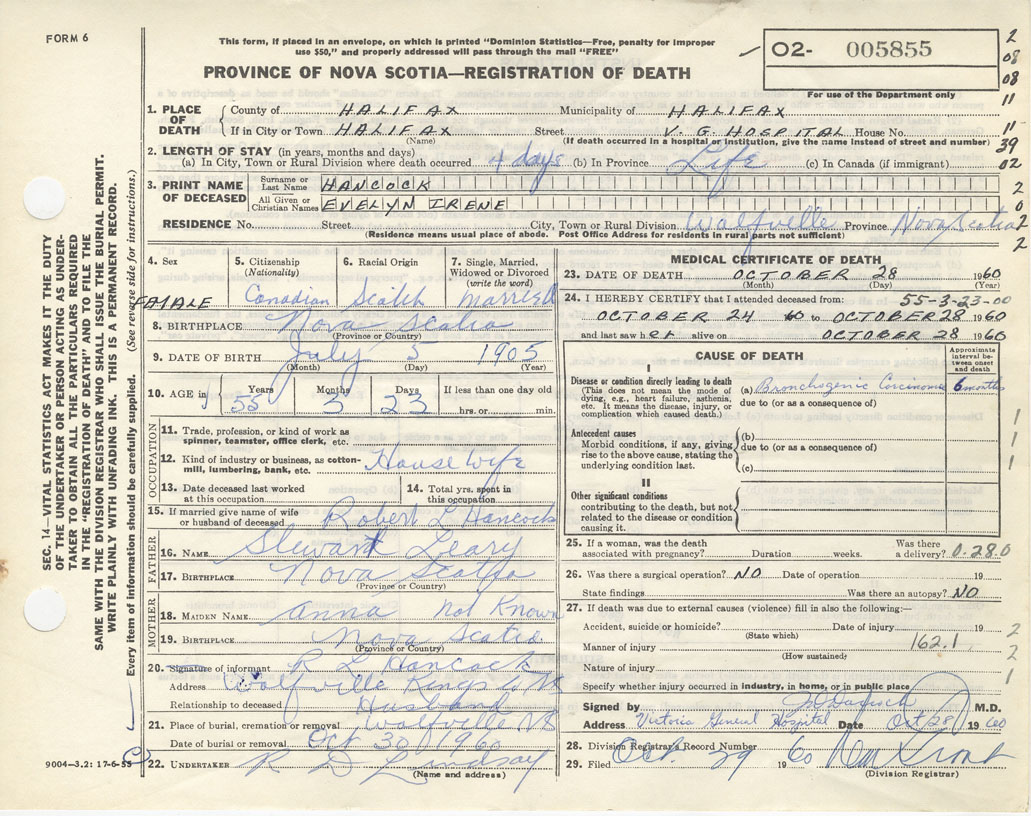 FORM 6
This form, if placed in an envelope, on which is printed "Dominion Statistics—Free, penalty for improper
use $50," and properly addressed will pass through the mail "FREE"
O2- 005855
For use of the Department only
PROVINCE OF NOVA SCOTIA—REGISTRATION OF DEATH
2
08
08
11
11
39
02
2
0
2
2
1. PLACE OF DEATH
County of HALIFAX Municipality of HALIFAX
If in City or Town HALIFAX Street V. G. HOSPITAL House No.
(Name) (If death occurred in a hospital or institution, give the name instead of street and number)
2. LENGTH OF STAY (in years, months and days)
(a) In City, Town or Rural Division where death occurred 4 days (b) In Province Life (c) In Canada (if immigrant)
3. PRINT NAME OF DECEASED
Surname or Last Name HANCOCK
All Given or Christian Names EVELYN IRENE
RESIDENCE No. Street City, Town or Rural Division Wolfville Province Nova Scotia
(Residence means usual place of abode. Post Office Address for residents in rural parts not sufficient)
SEC. 14—VITAL STATISTICS ACT MAKES IT THE DUTY
OF THE UNDERTAKER OR PERSON ACTING AS UNDER-
TAKER TO OBTAIN ALL THE PARTICULARS REQUIRED
IN THE "REGISTRATION OF DEATH" AND TO FILE THE
SAME WITH THE DIVISION REGISTRAR WHO SHALL ISSUE THE BURIAL PERMIT.
WRITE PLAINLY WITH UNFADING INK. THIS IS A PERMANENT RECORD.
Every item of information should be carefully supplied. (See reverse side for instructions.)
4. Sex
5. Citizenship (Nationality)
6. Racial Origin
7. Single, Married, Widowed or Divorced (write the word)
Canadian Scotch Married
8. BIRTHPLACE Nova Scotia
(Province or Country)
9. DATE OF BIRTH July 5 1905
(Month) (Day) (Year)
10. AGE in Years Months Days If less than one day old
55 3 23 hrs. or min.
OCCUPATION
11. Trade, profession, or kind of work as
spinner, teamster, office clerk, etc.
12. Kind of industry or business, as cotton-
mill, lumbering, bank, etc. House Wife
13. Date deceased last worked
at this occupation
14. Total yrs. spent in
this occupation
15. If married give name of wife
or husband of deceased Robert L Hancock
FATHER
16. NAME Stewart Leary
17. BIRTHPLACE Nova Scotia
(Province or Country)
MOTHER
18. MAIDEN NAME Anna not Known
19. BIRTHPLACE Nova Scotia
(Province or Country)
20. Signature of informant R L Hancock
Address Wolfville Kings Co NS
Relationship to deceased Husband
21. Place of burial, cremation or removal Wolfville NS
Date of burial or removal Oct 30/1960
22. UNDERTAKER R D Lindsay
(Name and address)
9004—3.2: 17-6-55
MEDICAL CERTIFICATE OF DEATH
23. DATE OF DEATH OCTOBER 28 1960
(Month) (Day) (Year)
24. I HEREBY CERTIFY that I attended deceased from: 55-3-23-00
OCTOBER 24 60 to OCTOBER 28 1960
and last saw her alive on OCTOBER 28 1960
CAUSE OF DEATH
Approximate interval between onset and death
I
Disease or condition directly leading to death
(This does not mean the mode of
dying, e.g., heart failure, asthenia,
etc. It means the disease, injury, or
complication which caused death.)
(a) Bronchogenic Carcinoma 6 months
due to (or as a consequence of)
Antecedent causes
Morbid conditions, if any, giving
rise to the above cause, stating the
underlying condition last.
(b)
due to (or as a consequence of)
(c)
1
1
1
II
Other significant conditions
contributing to the death, but not
related to the disease or condition
causing it.
25. If a woman, was the death
associated with pregnancy? Duration weeks. Was there a delivery? 0.280
26. Was there a surgical operation? NO Date of operation 19
State findings Was there an autopsy? NO
27. If death was due to external causes (violence) fill in also the following:—
Accident, suicide or homicide? Date of injury 19 2
(State which)
Manner of injury 162.1 2
(How sustained)
Nature of injury 1
Specify whether injury occurred in industry, in home, or in public place
Signed by M.D.
Address Victoria General Hospital Date Oct 28 1960
28. Division Registrar's Record Number
29. Filed Oct. 29 1960
(Division Registrar)